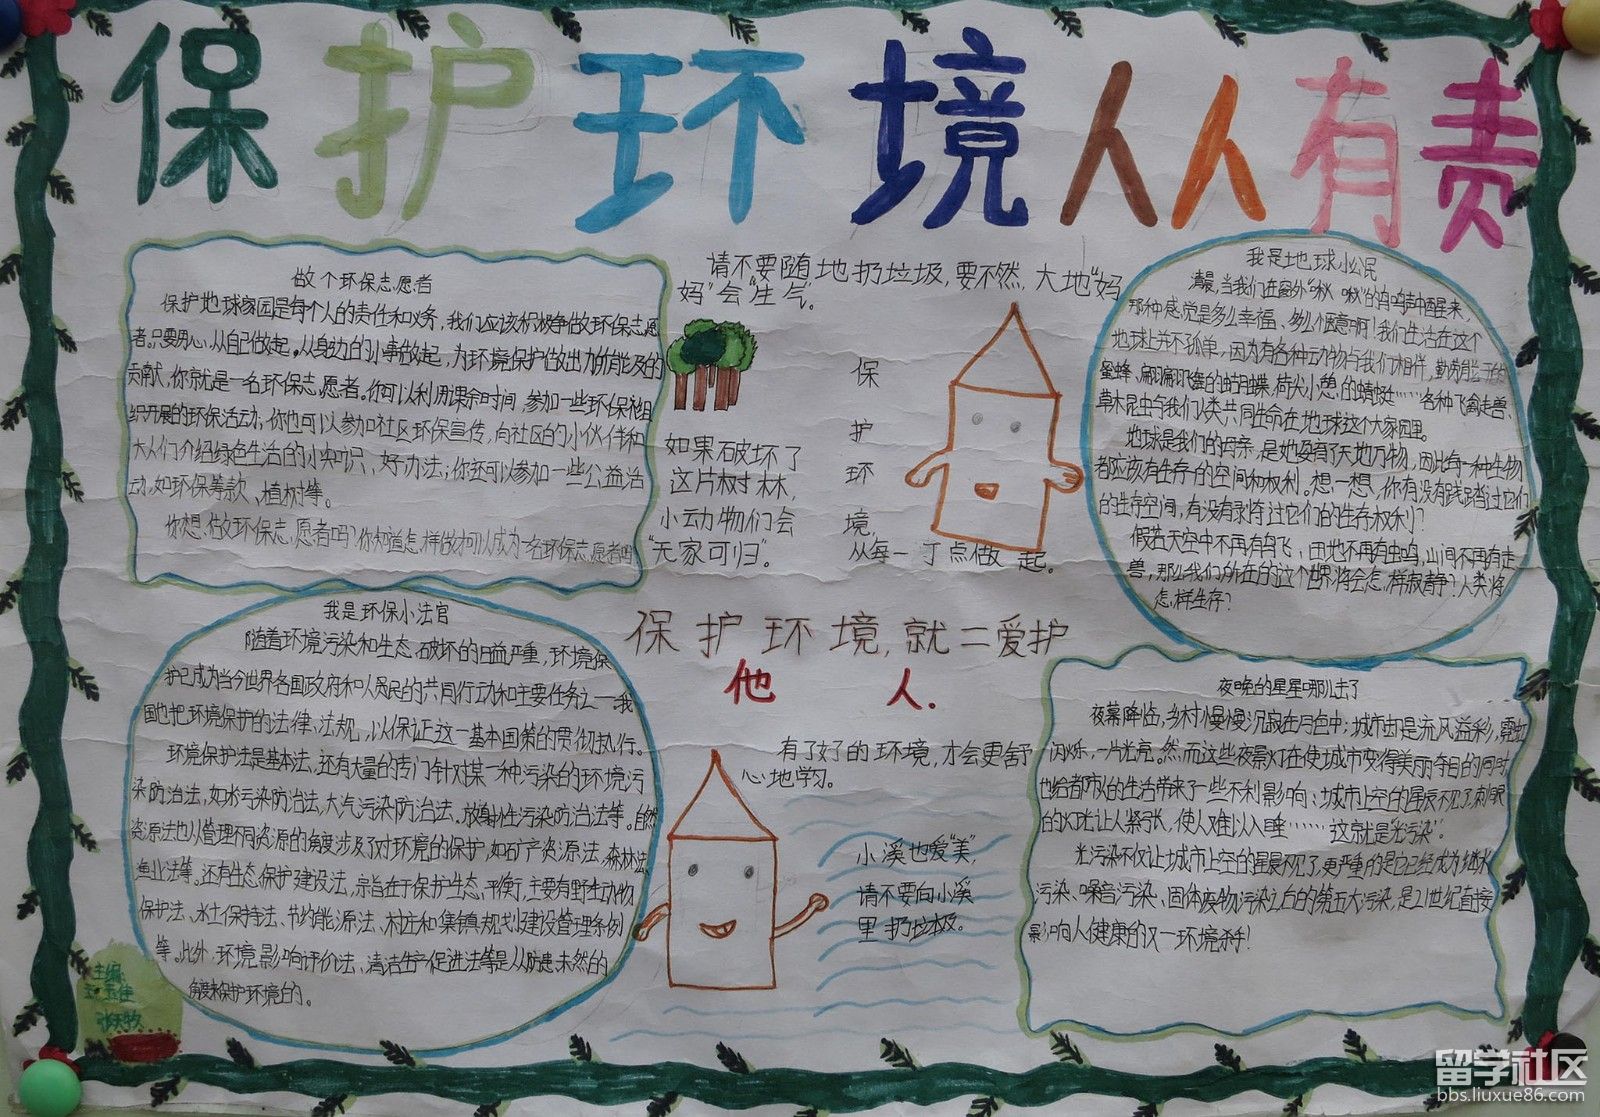 保护环境人人有责
做个环保志愿者
保护地球家园是每个人的责任和义务，我们应该积极争做环保志愿
者。只要用心，从自己做起。从身边的小事做起，为环境保护做出力所能及的
贡献，你就是一名环保志愿者。你可以利用课余时间，参加一些环保社组
织开展的环保活动，你也可以参加社区环保宣传，向社区的小伙伴和
大人们介绍绿色生活的小知识、好办法；你还可以参加一些公益活
动，如环保筹款、植树等。
你想做环保志愿者吗？你知道怎样做才可以成为一名环保志愿者吗
请不要随地扔垃圾，要不然，大地“妈
妈”会“生气”。
如果破坏了
这片树林，
小动物们会
“无家可归”。
保
护
环
境，
从每一丁点做起。
我是地球小公民
清晨，当我们在窗外“啾啾”的鸟鸣声中醒来，
那种感觉是多么幸福、多么惬意啊！我们生活在这个
地球上并不孤单，因为有各种动物与我们相伴，勤劳
蜜蜂、翩翩飞舞的蝴蝶、荷尖小憩的蜻蜓……各种飞禽走兽、
草木昆虫与我们人类共同生命在地球这个大家园里。
地球是我们的母亲，是她孕育了天地万物，因此每一种生物
都应该有生存的空间和权利。想一想，你有没有践踏过它们
的生存空间，有没有剥夺过它们的生存权利？
假若天空中不再有鸟飞，田地不再有虫鸣，山间不再有走
兽，那么我们所在的这个世界将会怎样寂静？人类将
怎样生存？
保护环境，就二爱护
他人.
我是环保小法官
随着环境污染和生态破坏的日益严重，环境保
护已成为当今世界各国政府和人民的共同行动和主要任务之一我
国也把环境保护的法律、法规，以保证这一基本国策的贯彻执行。
环境保护法是基本法，还有大量的专门针对某一种污染的环境污
染防治法，如水污染防治法、大气污染防治法、放射性污染防治法等。自然
资源法也从管理不同资源的角度涉及了对环境的保护，如矿产资源法、森林法、
渔业法等。还有生态保护建设法，宗旨在于保护生态平衡，主要有野生动物
保护法、水土保持法、节约能源法、村庄和集镇规划建设管理条例
等。此外，环境影响评价法、清洁生产促进法等是从防患未然的
角度来保护环境的。
有了好的环境，才会更舒
心地学习。
小溪也爱“美”，
请不要向小溪
里扔垃圾。
夜晚的星星哪儿去了
夜幕降临，乡村慢慢沉寂在月色中；城市却是流风溢彩，霓虹
闪烁，一片光亮。然而这些夜景灯在使城市变得美丽夺目的同时，
也给都市人的生活带来了一些不利影响：城市上空的星辰不见了，刺眼
的灯光让人紧张，使人难以入睡……这就是“光污染”。
光污染不仅让城市上空的星辰不见了，更严重的是它已经成为继水
污染、噪音污染、固体废物污染之后的第五大污染，是21世纪直接
影响人健康的又一环境杀手！
主编
留学社区
bbs.liuxue86.com